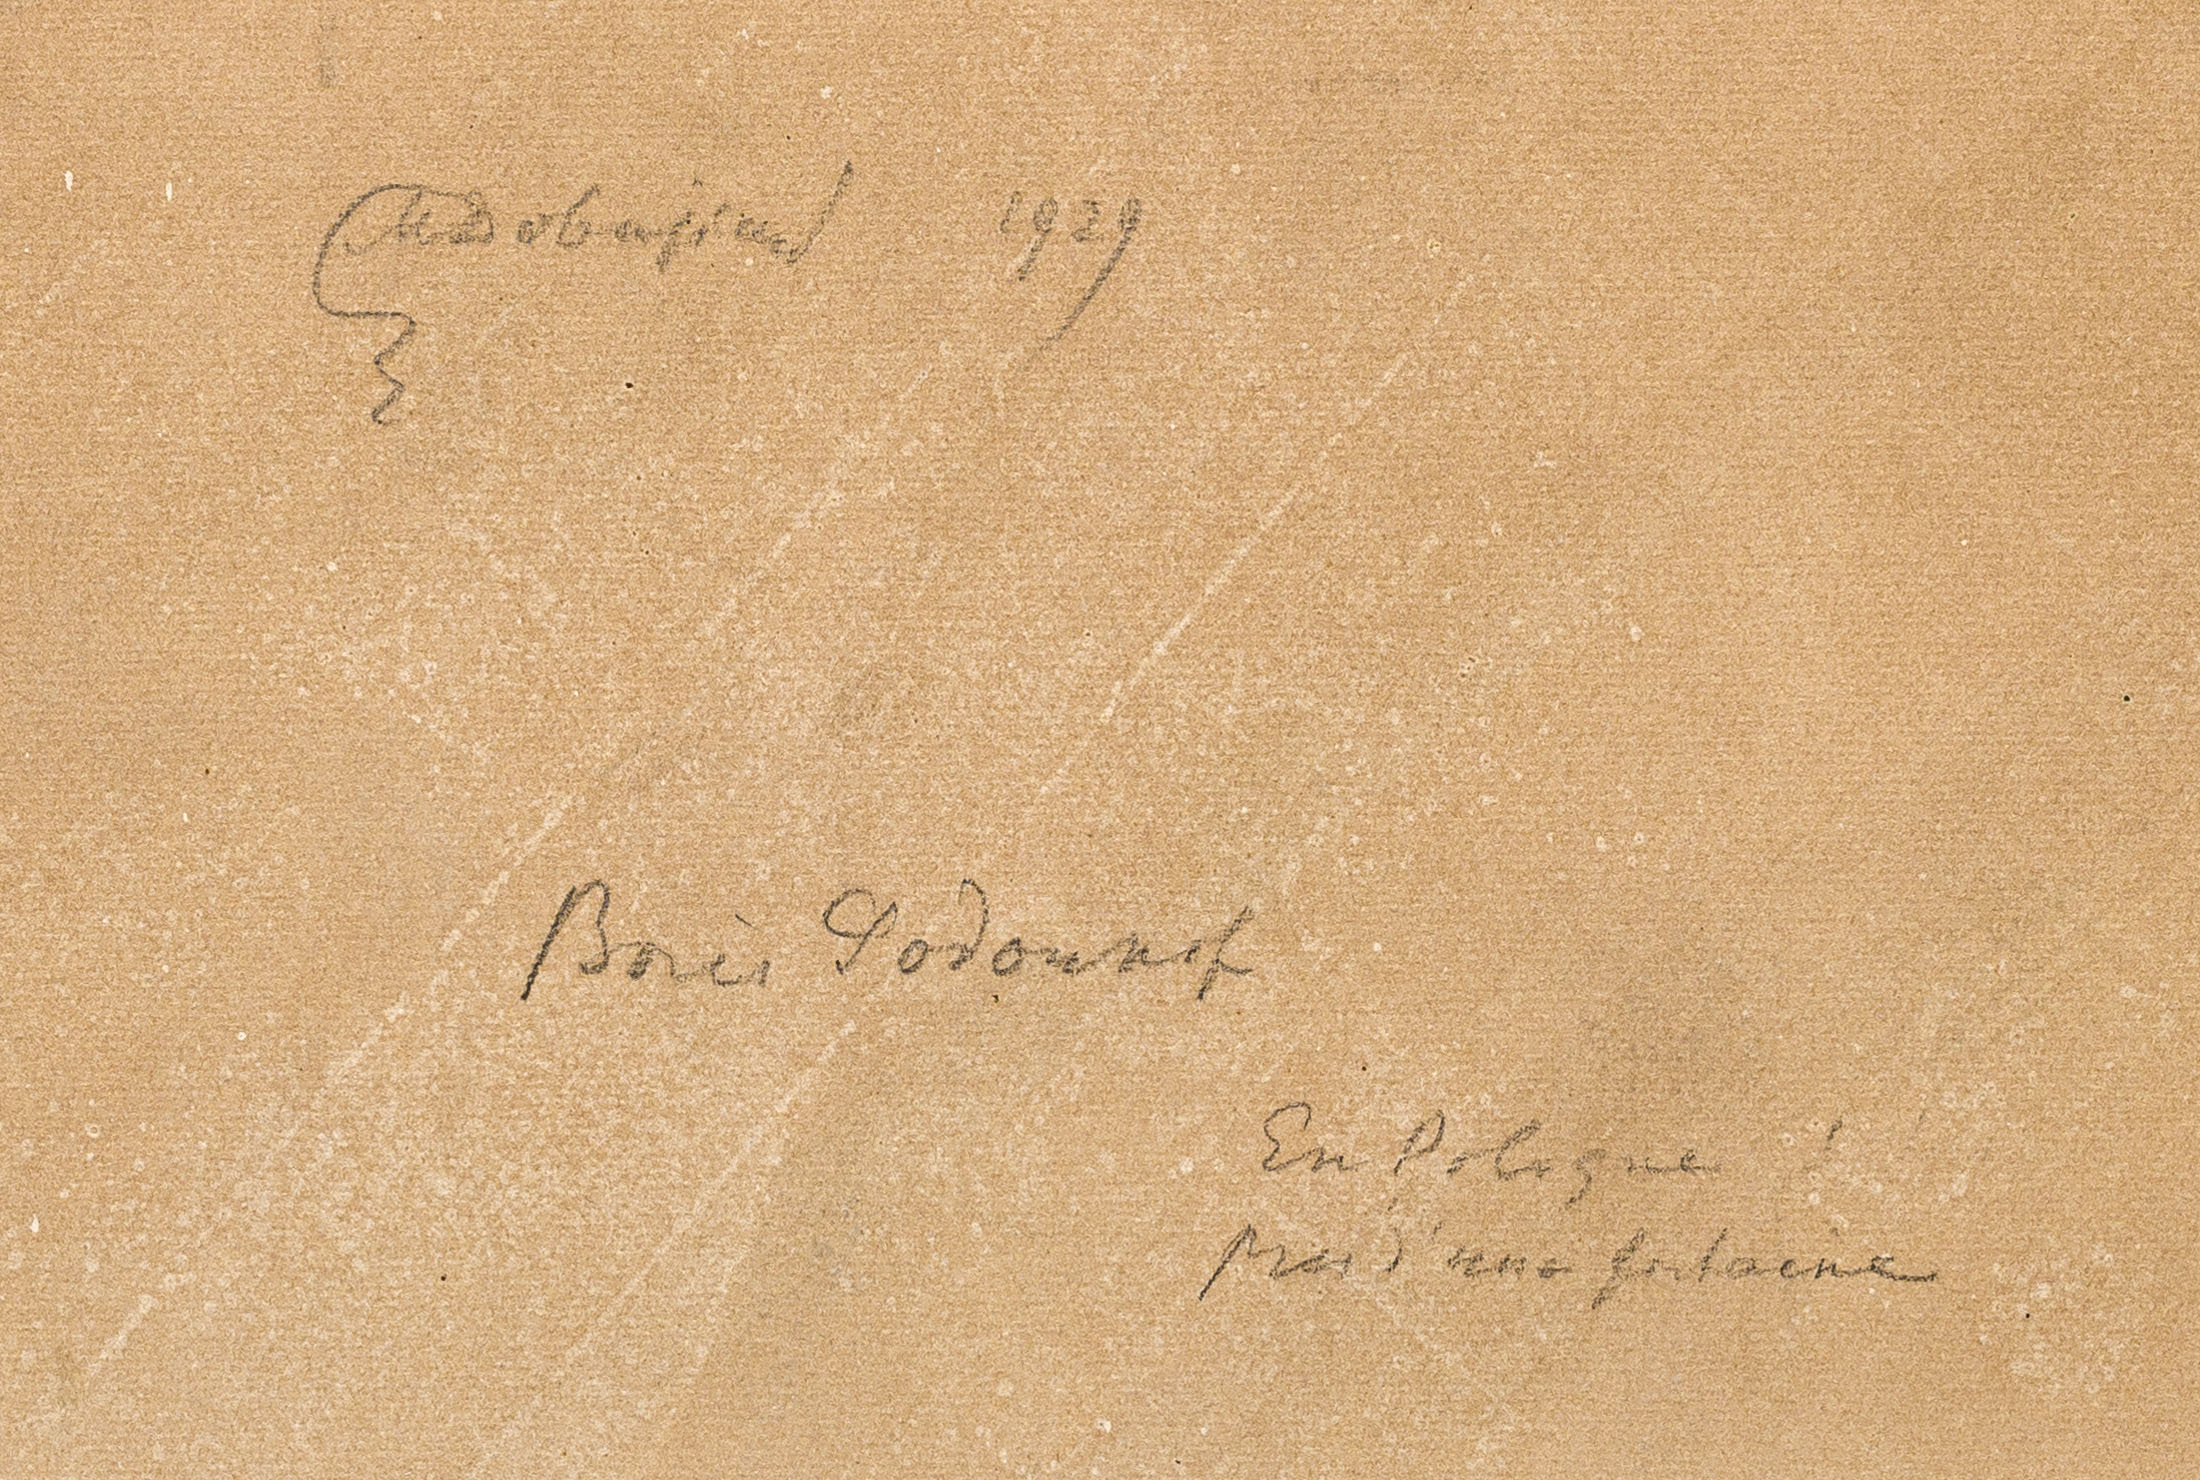 MDobujinsky 1929
Boris Godounof
En Pologne
près d'une fontaine